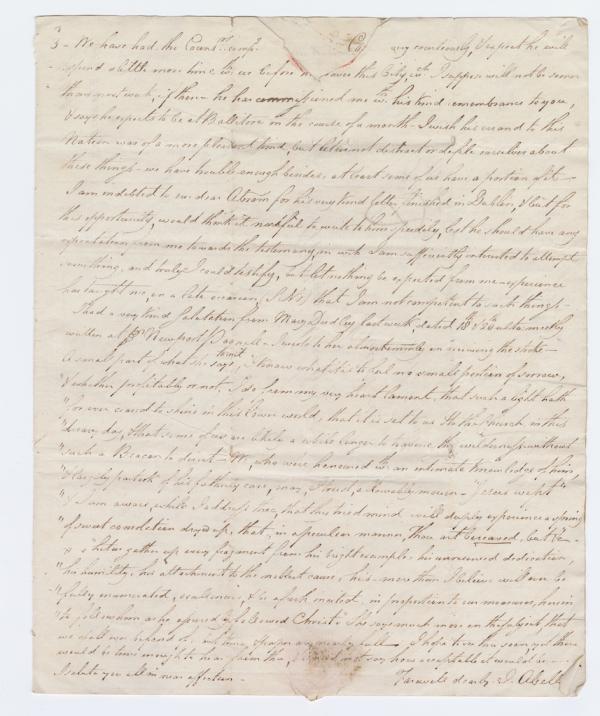 3 - We have had the Couns.rs comp.y very courteously, I expect he will
spend a little more time wth. us before he leaves this City, wch. I suppose will not be sooner
than next week, if then - he has commissioned me wth. his kind remembrance to you,
& says he expects to be at Ballitore in the course of a month - I wish his errand to this
Nation was of a more pleasant kind, but let us not distract or deple ourselves about
these things - we have trouble enough besides, at least some of us have a portion of it -
I am indebted to our dear Abram for his very kind letter finished in Dublin, & but for
this opportunity, would think it needful to write to him speedily, lest he should have any
expectation from me towards the testimony, in wch. I am sufficiently interested to attempt
something, and truly I could testify, but let nothing be expected from me - experience
has taught me, on a late occasion, that I am not competent to such things -
I had a very kind salutation from Mary Dudley last week dated 18th
written at Newport Pagnell - I wrote to her almost immediately on receiving the stroke -
A small part of what she says, "I know what it is to feel no small portion of sorrow,
"& whether profitably or not, I do from my very heart lament, that such a light hath
"for ever ceased to shine in this lower world, that it is set to us & to the Church in this
"dreary day, & that some of us are left a while longer to traverse the wilderness without
"such a Beacon to direct - We, who were honoured wth. an intimate knowledge of him,
"& largely partook of his fatherly care, may, I trust, allowably mourn - "Jesus wept"
"& I am aware, while I address thee, that thy tried mind will deeply experience a spring
"of sweet consolation dryed up, that, in a peculiar manner, Thou art bereaved, but
" let us gather up every fragment from his bright example - his unreserved dedication,
"his humility, his attachment to the noblest cause, his - more than I believe will ever be
"fully enumerated, excite our, & be afresh incited, in proportion to our measures, herein
"to follow him as he appeared to follow Christ" She says much more on the subject, that
we shall over, but time & paper are nearly full - I
would be time enough to hear from thee, I need not say how acceptable it would be -
I salute you all in near affection - Farewell dearly - J. Abell